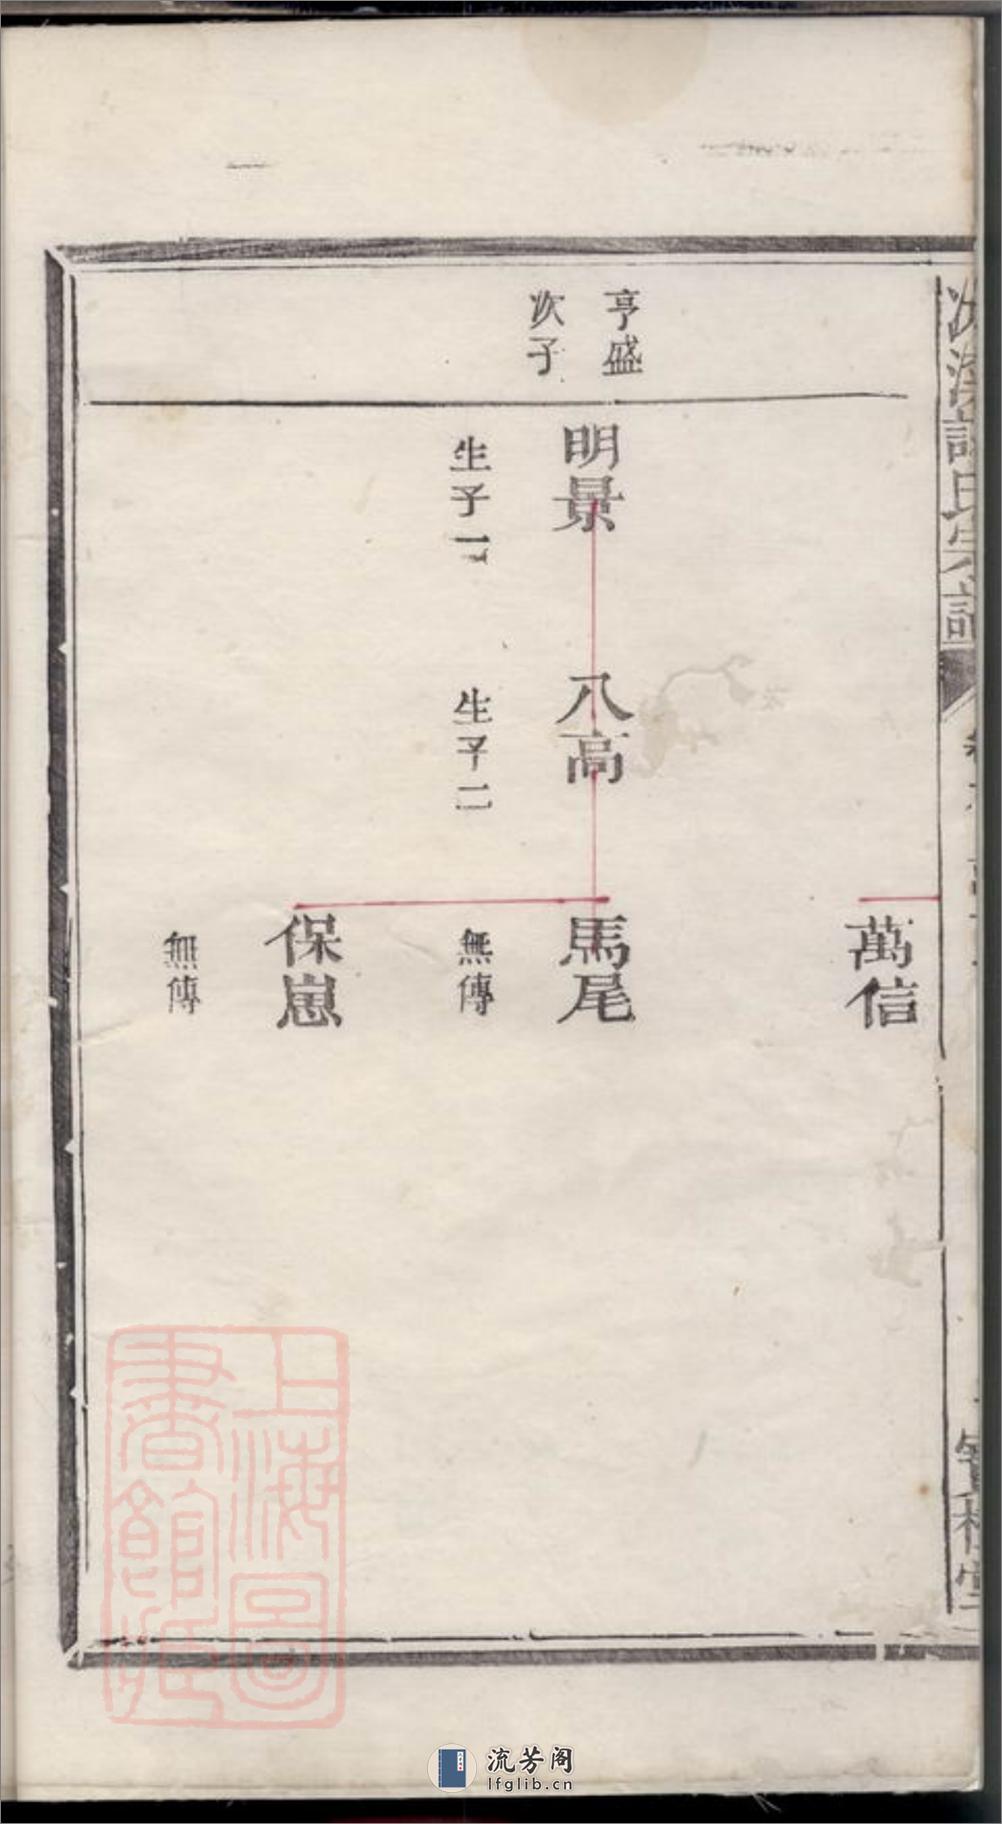 氏宗譜
萬信
亨盛
次子
明景
生子一
八高
生子二
馬尾
無傳
保崽
無傳
上海圖
書館藏
流芳阁
lfglib.cn